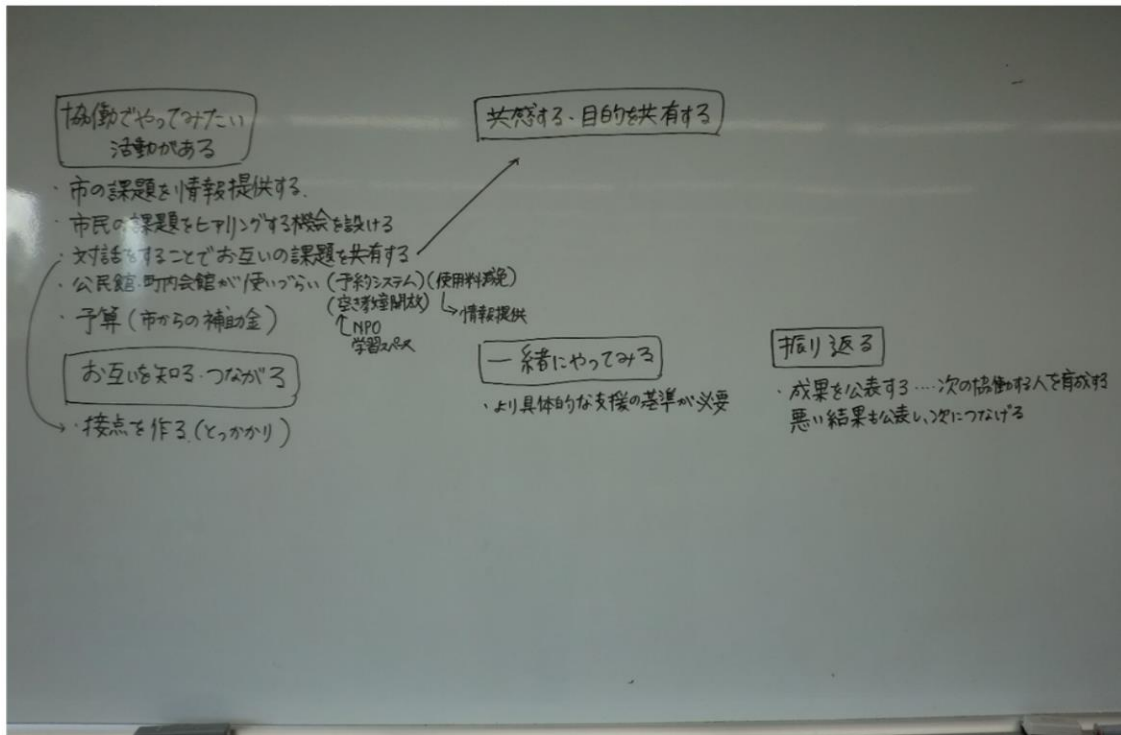 協働でやってみたい
活動がある
・市の課題を情報提供する.
・市民の課題をヒアリングする機会を設ける
・対話をすることでお互いの課題を共有する
・公民館・町内会館が使いづらい (予約システム)(使用料減免)
(空き教室開放)
情報提供
NPO
学習スペース
・予算 (市からの補助金)
お互いを知る・つながる
・接点を作る.(とっかかり)
共感する・目的を共有する
一緒にやってみる
・より具体的な支援の基準が必要
振り返る
・成果を公表する‥‥次の協働する人を育成する
悪い結果も公表し、次につなげる